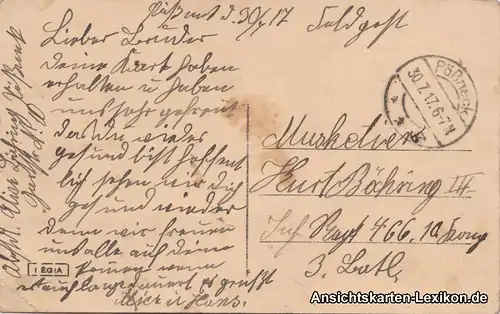 Pößneck d. 30/7 17
Feldpost
Lieber Bruder
deine Kart haben
erhalten u haben
uns sehr gefreut
das du wieder
gesund bist hoffent
lich sehen wir dich
und wieder
denn wir freuen
uns alle auf deine
wenn
auch lange dauert es grüßt
u Hans.
Absdr.
Böhring Pößneck
Pößneck
30.7.17.6-7N
Musketier
Kurt Böhring III
Inf Regt 466. 10 Komp
3. Batl.
LEGIA
Ansichtskarten-Lexikon.de